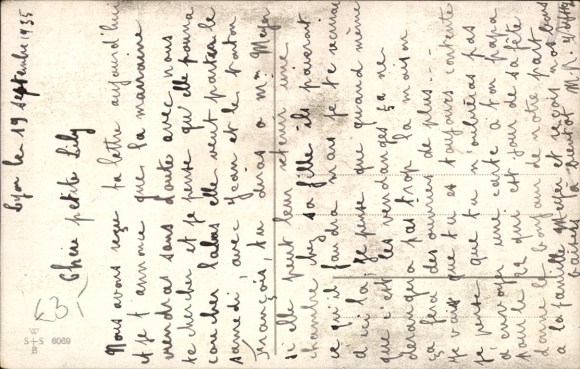 Lyon le 19 septembre 1935
Chère petite Lily
Nous avons reçu ta lettre aujourd'hui
et je t'annonce que la marraine
viendras sans doute avec nous
te chercher et je pense qu'elle pourra
coucher labas elle veut partir le
samedi avec Jean et le tonton
François, tu diras a Mme Meyer
si elle peut leur retenir une
chambre chez sa fille ils paieront
ce qu'il faudra mais je te verrai
d'ici la je pense que quand même
que c'est les vendanges ça ne
derangera pas trop la maison
ça fera des ouvriers de plus...
Je vais que tu es toujours contente
je pense que tu n'oublieras pas
d'envoyer une carte a ton papa
pour le 22 qui est jour de sa fête
donne le bonjour de notre part
a la famille Meyer et reçois nos bons
baisers a bientôt M.R.
W
S+S 6069
B